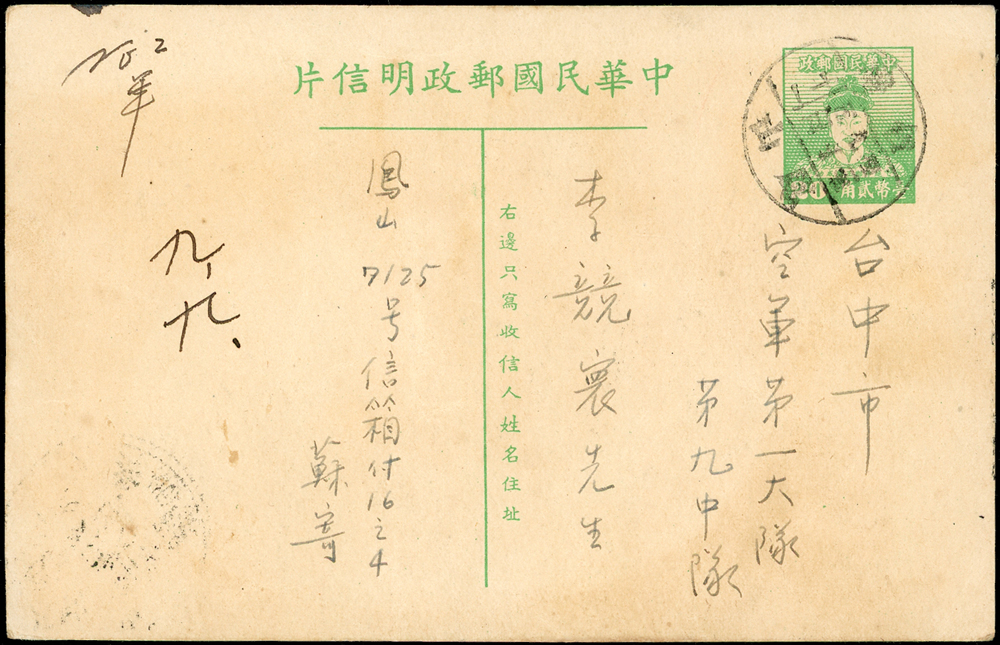 中華民國郵政明信片
中華民國郵政
台幣貳角
台中市
空軍第一大隊
第九中隊
李競寰先生
右邊只寫收信人姓名住址
鳳山 7125号信箱付16之4
蘇寄
軍
九、
九、